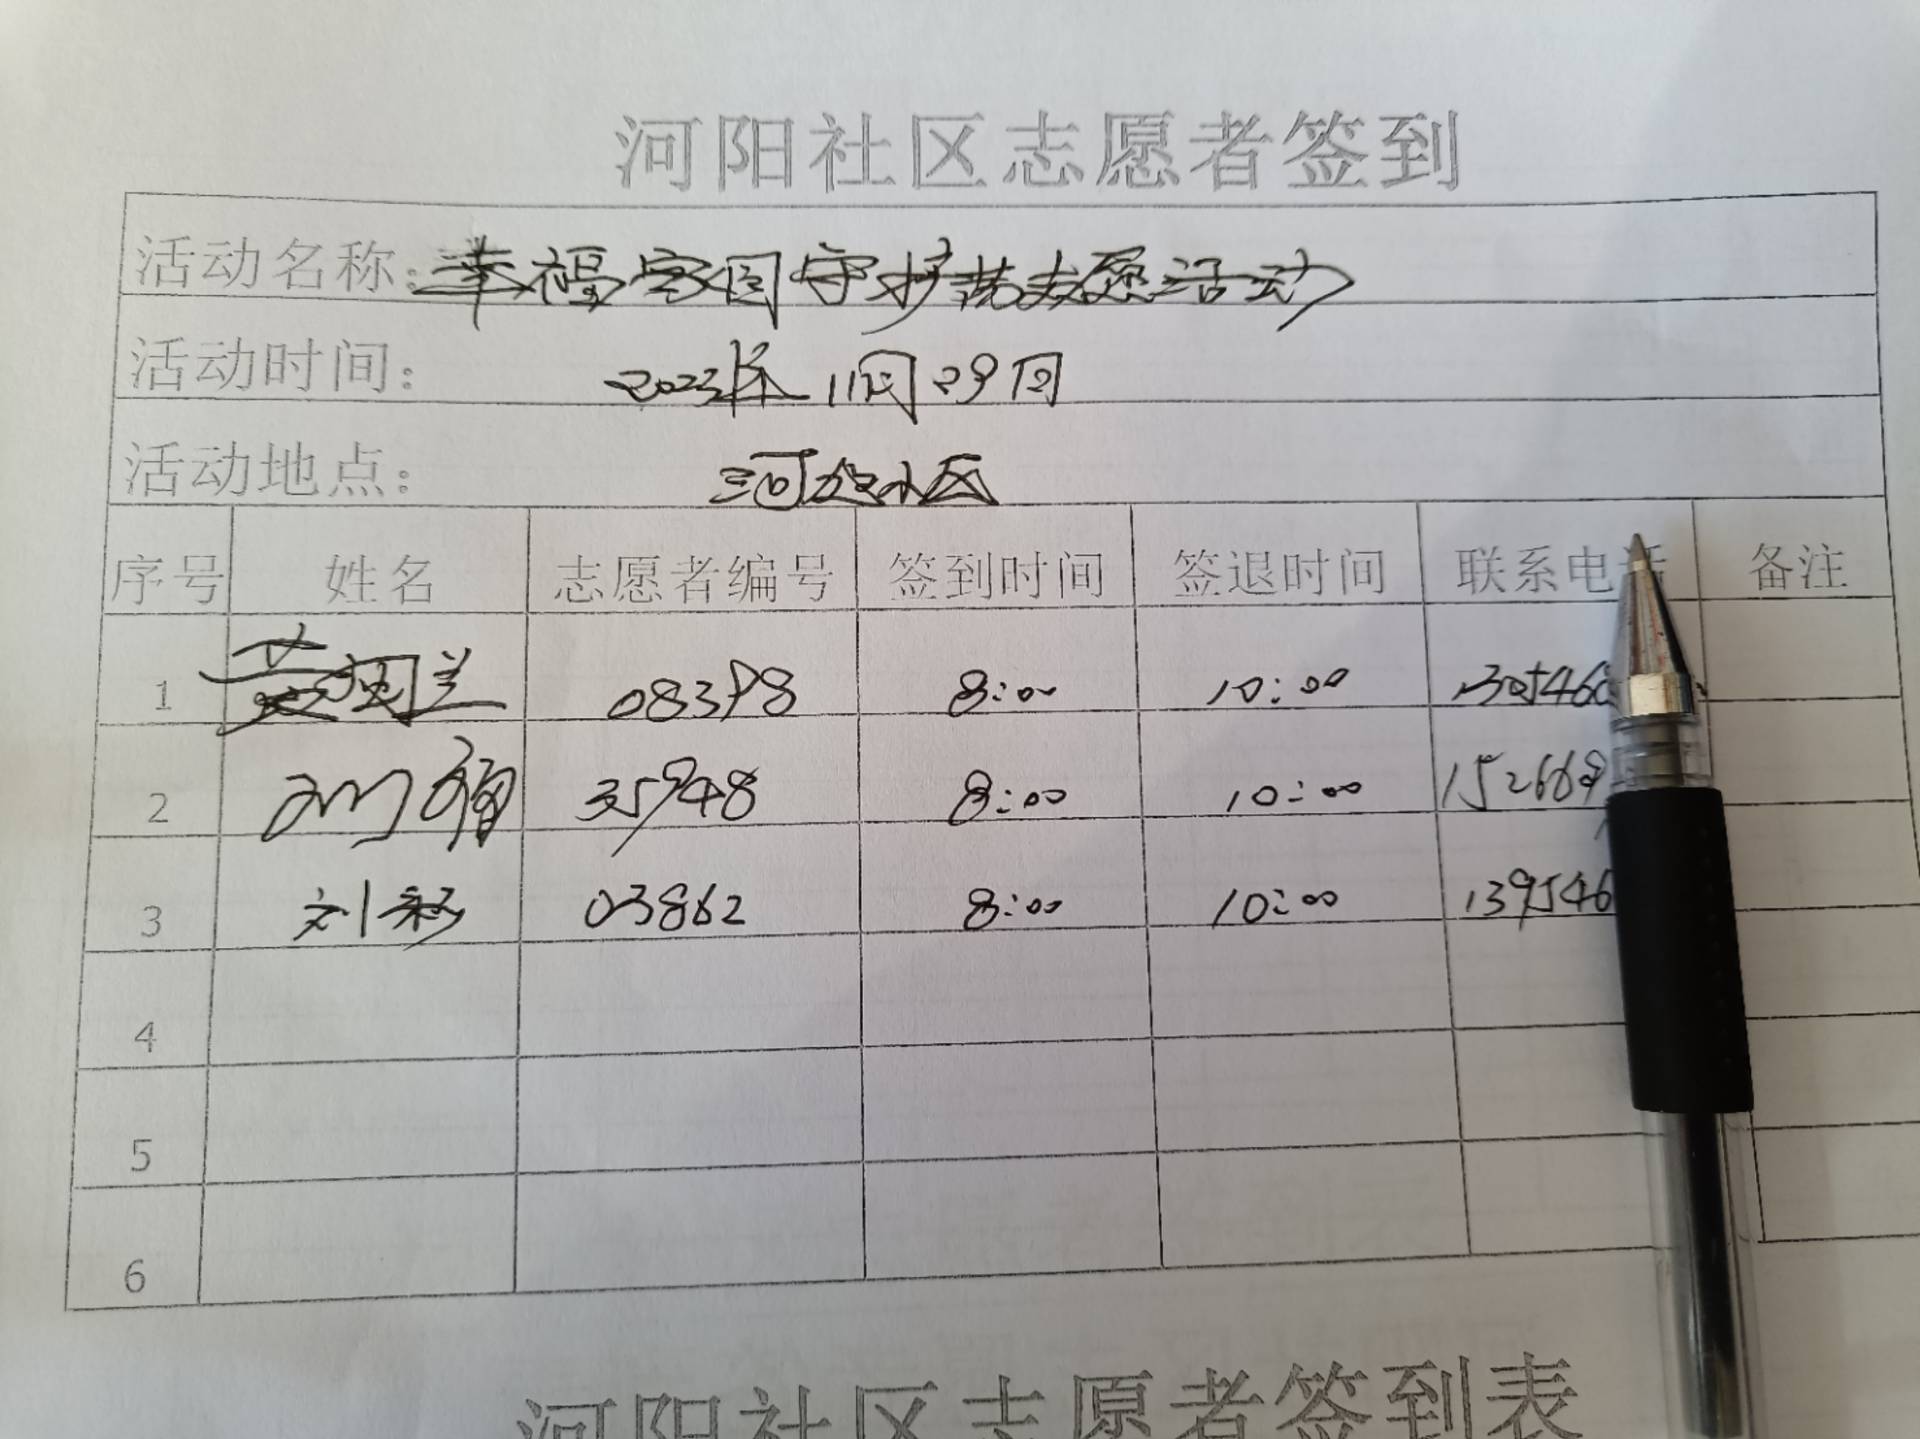 河阳社区志愿者签到
活动名称：幸福家园守护志愿活动
活动时间： 2023年11月29日
活动地点： 河小区
序号 姓名 志愿者编号 签到时间 签退时间 联系电话 备注
1 兰 08398 8:00 10:00
2 35948 8:00 10:00 152669
3 刘 03862 8:00 10:00 139546
4
5
6
河阳社区志愿者签到表